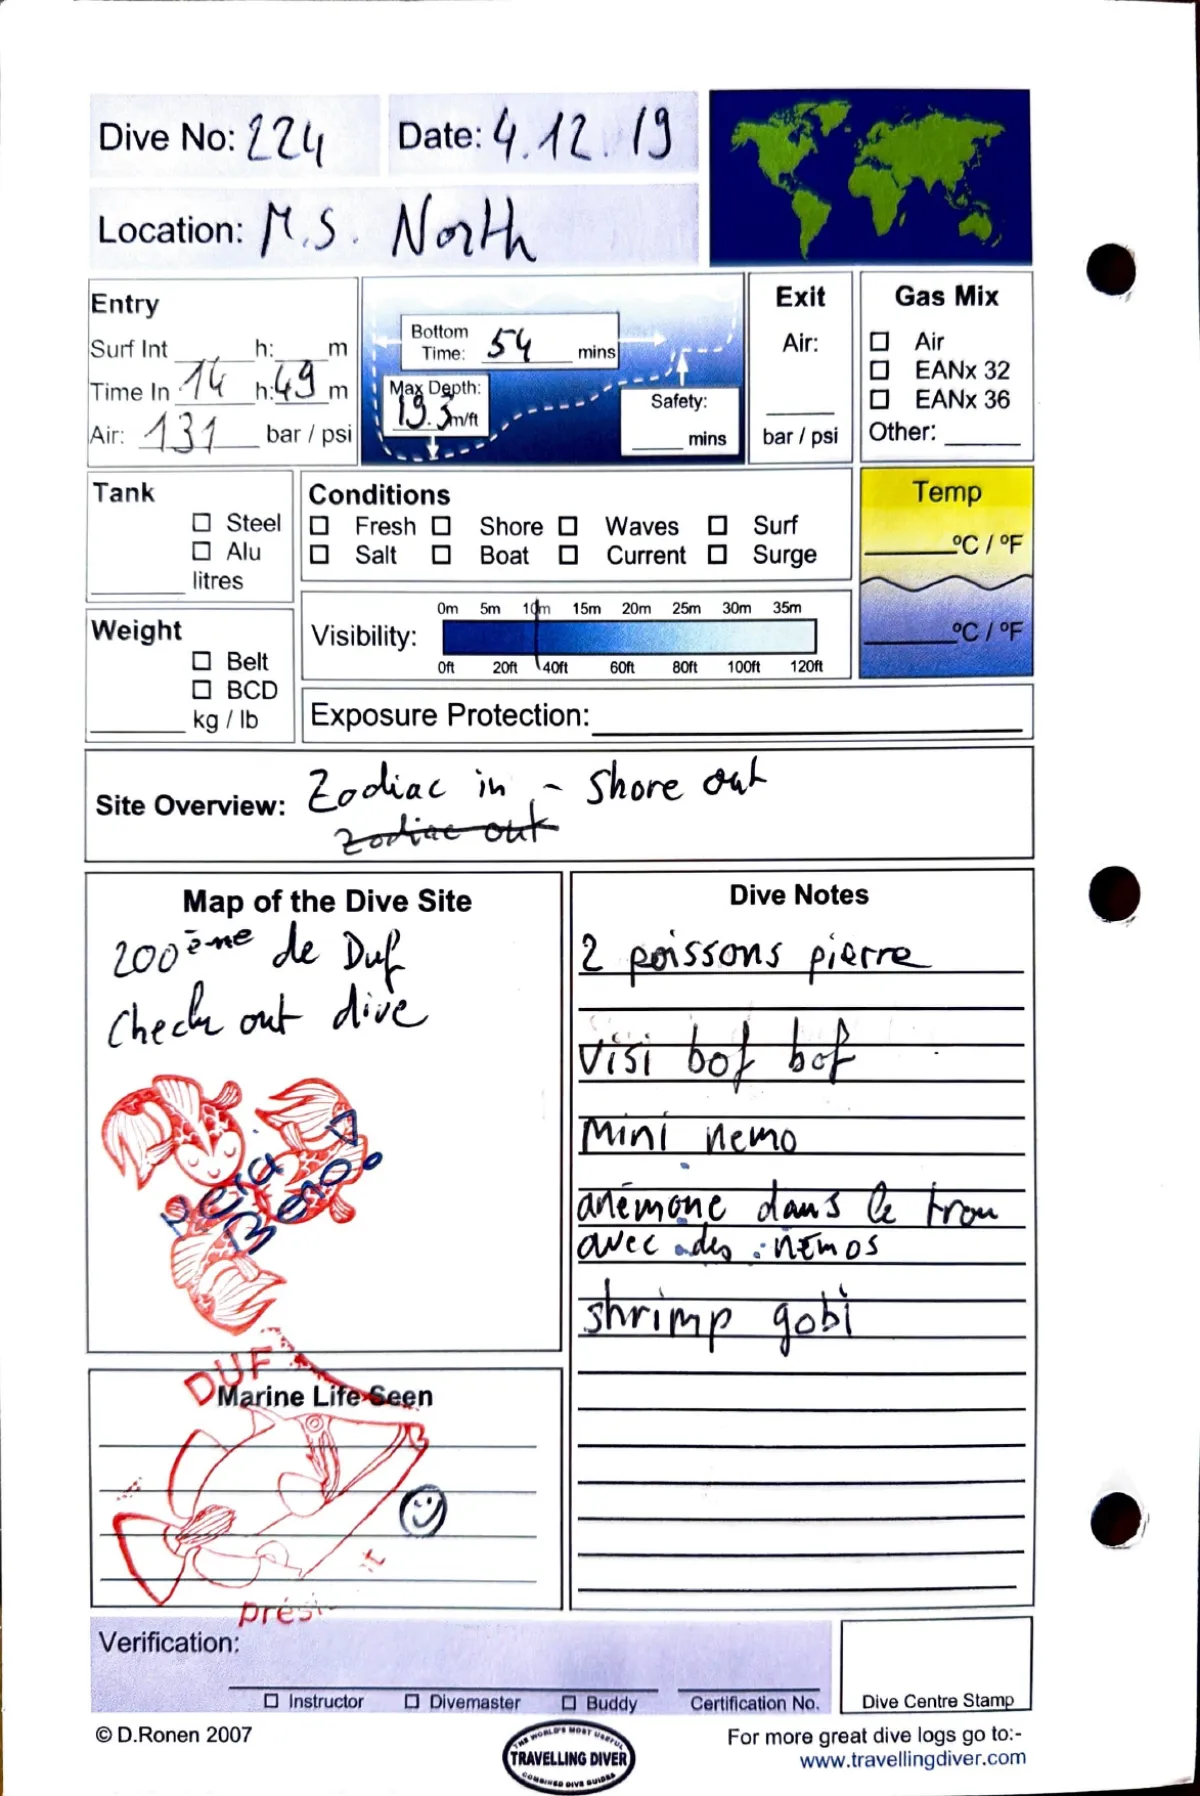 Dive No: 224 Date: 4.12.19
Location: M.S. North
Entry
Surf Int h: m
Time In 14 h: 49 m
Air: 131 bar / psi
Bottom
Time: 54 mins
Max Depth:
19.3 m/ft
Safety:
mins
Exit
Air:
bar / psi
Gas Mix
Air
EANx 32
EANx 36
Other:
Tank
Steel
Alu
litres
Conditions
Fresh Shore Waves Surf
Salt Boat Current Surge
Temp
ºC / ºF
ºC / ºF
Weight
Belt
BCD
kg / lb
0m 5m 10m 15m 20m 25m 30m 35m
Visibility:
0ft 20ft 40ft 60ft 80ft 100ft 120ft
Exposure Protection:
Site Overview: Zodiac in - Shore out
Zodiac out
Map of the Dive Site
200ème de Duf
Check out dive
Beno
DUF
Marine Life Seen
Dive Notes
2 poissons pierre
Visi bof bof
Mini nemo
anémone dans le trou
avec des nemos
shrimp gobi
Verification:
Instructor Divemaster Buddy Certification No.
Dive Centre Stamp
© D.Ronen 2007
THE WORLD'S MOST USEFUL
TRAVELLING DIVER
COMBINED DIVE GUIDES
For more great dive logs go to:-
www.travellingdiver.com